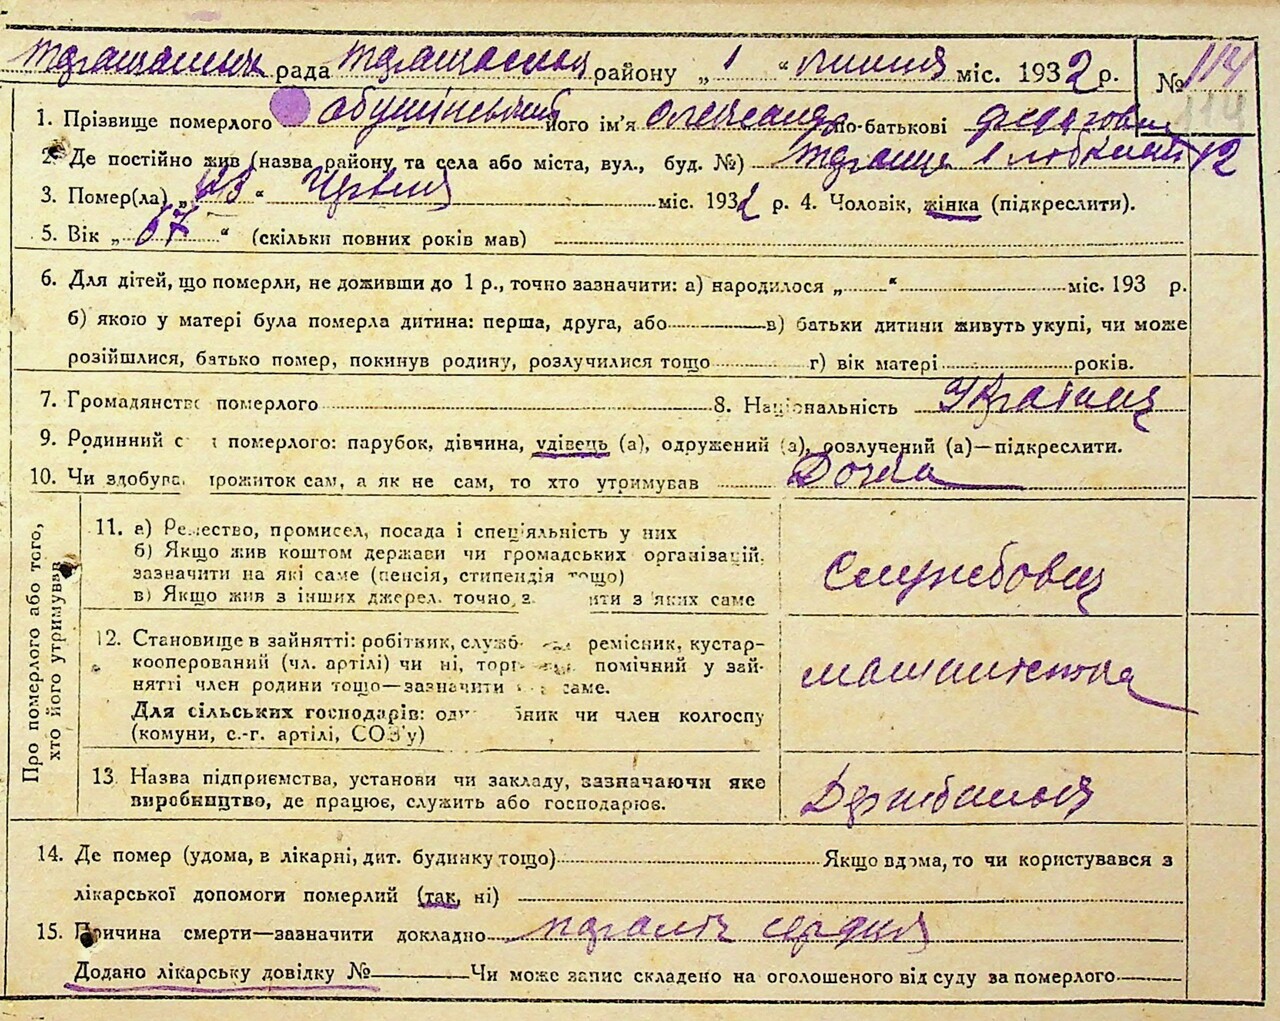 рада району „1“ липня міс. 1932 р. № 114
114
1. Прізвище померлого його ім'я по-батькові
2. Де постійно жив (назва району, та села або міста, вул., буд. №) 12
3. Помер(ла) „23“ Червня міс. 1932 р. 4. Чоловік, жінка (підкреслити).
5. Вік „67“ (скільки повних років мав)
6. Для дітей, що померли, не доживши до 1 р., точно зазначити: а) народилося „ “ міс. 193 р.
б) якою у матері була померла дитина: перша, друга, або в) батьки дитини живуть укупі, чи може
розійшлися, батько помер, покинув родину, розлучилися тощо г) вік матері років.
7. Громадянство померлого 8. Національність Українця
9. Родинний с померлого: парубок, дівчина, удівець (а), одружений (а), розлучений (а)—підкреслити.
10. Чи здобува прожиток сам, а як не сам, то хто утримував Дочка
Про померлого або того,
хто його утримував
11. а) Ремество, промисел, посада і спеціяльність у них
б) Якщо жив коштом держави чи громадських організацій,
зазначити на які саме (пенсія, стипендія тощо)
в) Якщо жив з інших джерел, точно з ити з яких саме
Службовця
12. Становище в зайнятті: робітник, служб ремісник, кустар-
кооперований (чл. артілі) чи ні, торг помічний у зай-
нятті член родини тощо—зазначити саме.
Для сільських господарів: од бник чи член колгоспу
(комуни, с.-г. артілі, СОЗ'у)
машиністка
13. Назва підприємства, установи чи закладу, зазначаючи яке
виробництво, де працює, служить або господарює.
Держбанья
14. Де помер (удома, в лікарні, дит. будинку тощо) Якщо вдома, то чи користувався з
лікарської допомоги померлий (так, ні)
15. Причина смерти—зазначити докладно параліч сердця
Додано лікарську довідку № Чи може запис складено на оголошеного від суду за померлого